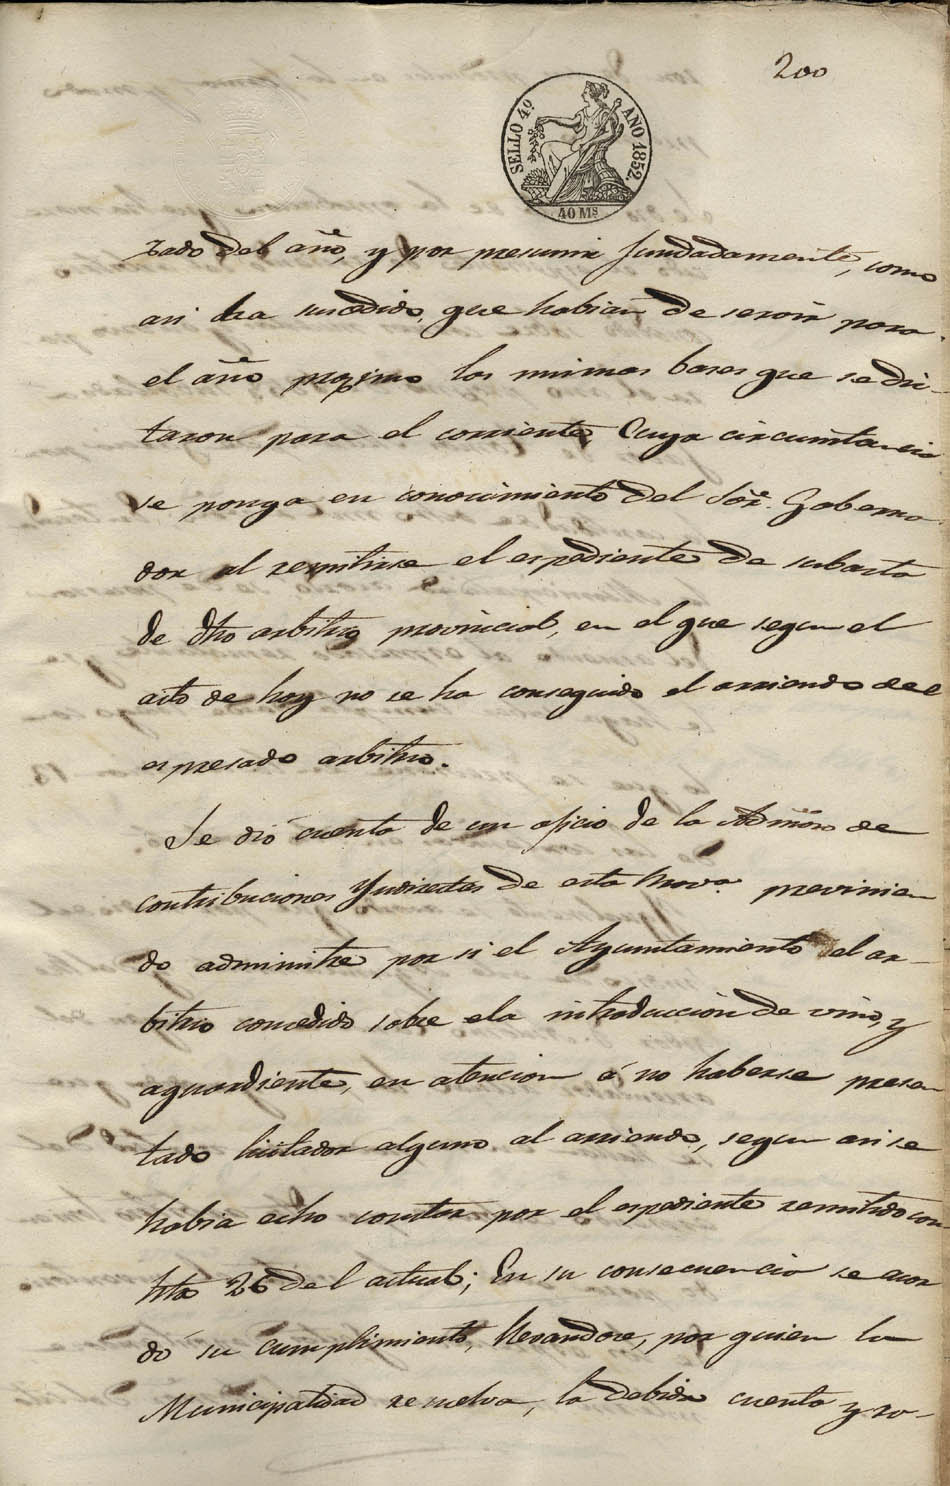 200
SELLO 4º AÑO 1852.
40 Ms
zado del año, y por presumir fundadamente, como
asi ha sucedido, que habian de servir para
el año procsimo las mismas bases que se dic-
taron para el corriente, Cuya circunstancia
se ponga en conocimiento del Sor. Goberna
dor al remitirse el espediente de subasta
de dho arbitrio provincial, en el que segun el
acto de hoy no se ha conseguido el arriendo del
espresado arbitrio.
Se dió cuenta de un oficio de la Admon de
contribuciones Yndirectas de esta Prova. previnien
do administre por si el Ayuntamiento el ar-
bitrio concedido sobre la introduccion de vino, y
aguardiente, en atencion á no haberse presen
tado licitador alguno al arriendo, segun asi se
habia echo constar por el espediente remitido con
fha 26 del actual; En su consecuencia se acor
dó su cumplimiento, llevandose, por quien la
Municipalidad resuelva, la debida cuenta y ra-